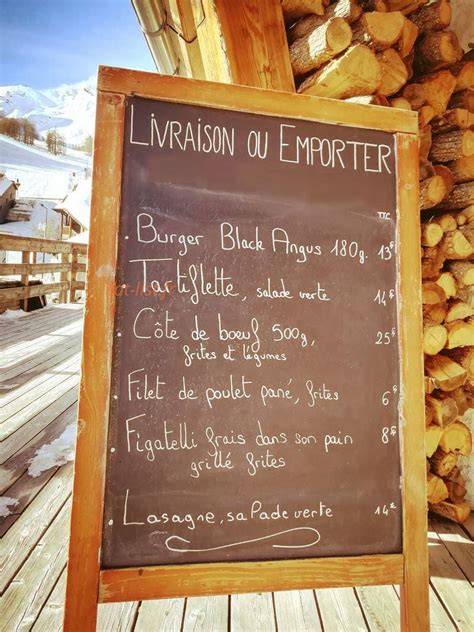 LIVRAISON OU EMPORTER
TTC
. Burger Black Angus 180g. 13€
. Tartiflette, salade verte 14€
. Côte de boeuf 500g, 25€
frites et légumes
. Filet de poulet pané, frites 6€
. Figatelli frais dans son pain 8€
grillé frites
. Lasagne, salade verte 14€